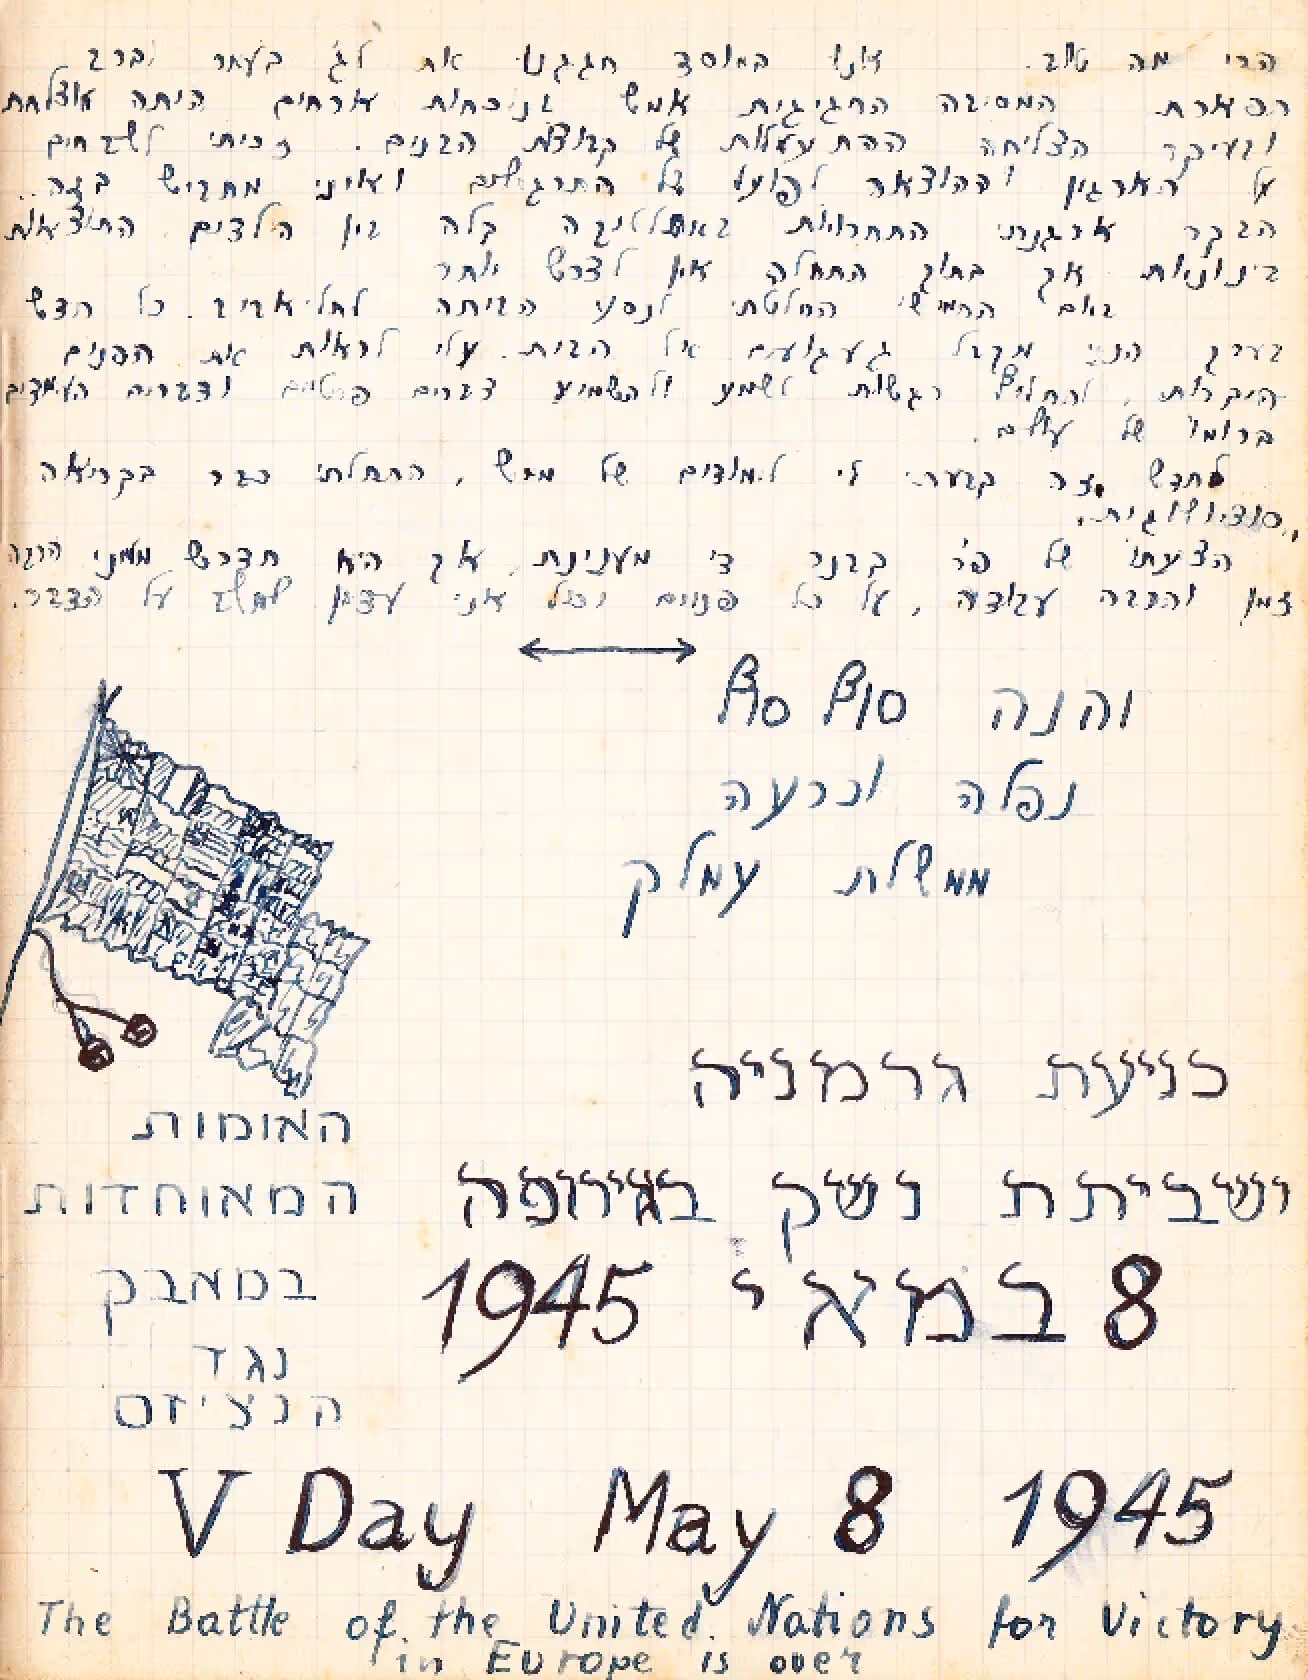 הרי מה טוב. אנו במוסד חגגנו את לג בעמר וברב
תפארת המסיבה החגיגית אמש בנוכחות אורחים היתה מוצלחת
ובעיקר הצליחה ההתעמלות של קבוצת הבנים. זכיתי לשבחים
על הארגון וההוצאה לפועל של התרגילים ואינני מתביש בזה..
הבקר ארגנתי התחרויות באתלטיקה קלה בין הילדים התוצאות
בינוניות אך בתור התחלה אין לדרש יותר
ביום החמישי החלטתי לנסע הביתה לתל-אביב. כל חדש
בערך הנני מקבל געגועים אל הבית. עלי לראות את הפנים
היקרות, להחליף רגשות לשמע ולהשמיע דברים פרטיים ודברים העומדים
ברומו של עולם.
לחדש זה קבעתי לי למודים של ממש, התחלתי כבר בקריאה
"סוציולוגית.
הצעתו של פר' די מענינת אך היא תדרש ממני הרבה
זמן והרבה עבודה, על כל פנים אני עדין לחשב על הדבר.
והנה סוף סוף
נפלה וכרעה
ממשלת עמלק
כניעת גרמניה
ושביתת נשק באירופה
8 במאי 1945
האומות
המאוחדות
במאבק
נגד
הנציזם
V Day May 8 1945
The Battle of the United Nations for Victory
in Europe is over